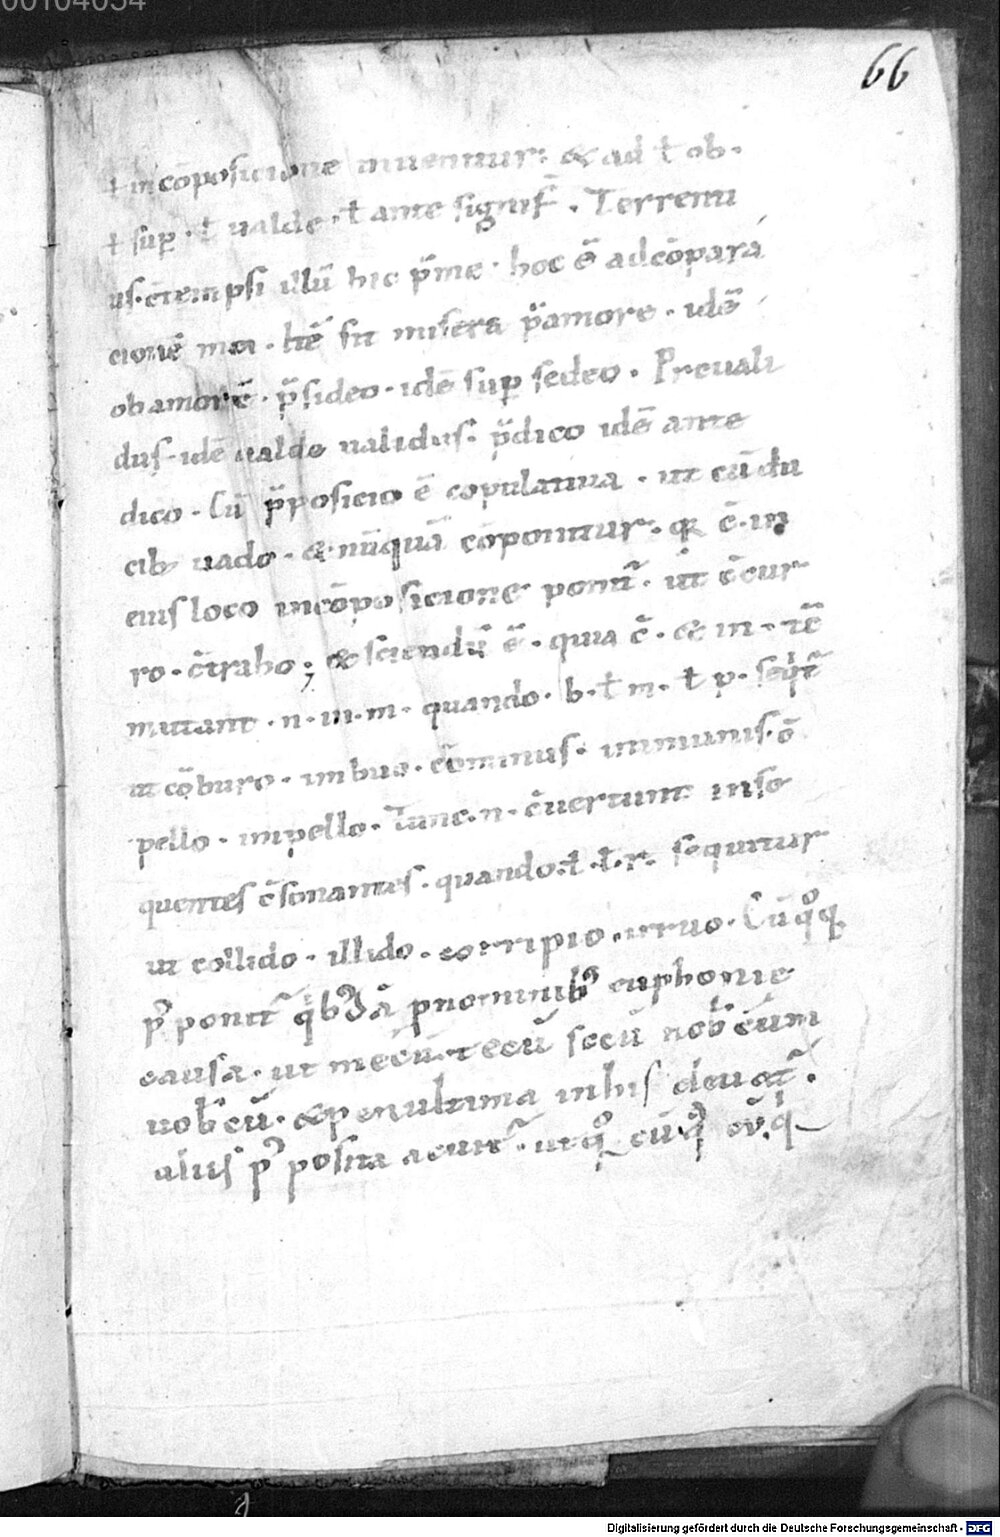 00104034
66
ł incōposicione inueniuntur. & ad ł ob.
ł sup̱. ł ualde. ł ante signif̄. Terrenti
us. etempsi illū hic p̄me. hoc ē adcōpara
cionē mei. Itē sit misera p̄amore. idē
ob amorē. p̄sideo. idē sup̱ sedeo. Preuali
dus. idē ualde ualidus. p̄dico idē ante
dico. Cū p̄posicio ē copulatiua. ut cū du
cib; uado. & nūquā cōponitur. qꝛ c̄. in
eius loco incōposicione ponit̄. ut c̄cur
ro. c̄traho; & sciendū ē. quia c̄. & in. īē
mutant. n. in. m. quando. b. ł m. ł p. seqͥt̄
ut cōburo. imbuo. cōminus. inmunis. cō
pello. impello. Tunc. n. c̄uertunt inse
quentes c̄sonantes. quando. ł. l. r. sequitur
ut collido. illido. corripio. irruo. Cū qͦq
p̄ponit̄ qͥbdā pnominib; euphonie
causa. ut mecū. tecū secū nob cūm
uob cū. & penultima in his eleuat̄.
aliis p̄posita acuit̄. ut qͦ cūqͣ cū.q
Digitalisierung gefördert durch die Deutsche Forschungsgemeinschaft - DFG